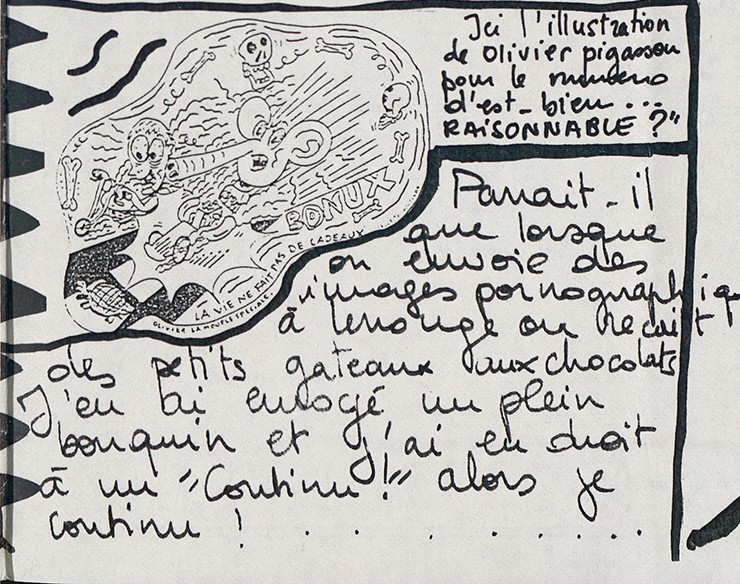 Ici l'illustration
de Olivier pigassou
pour le numero
d'est-bien...
RAISONNABLE ?"
BONUX
LA VIE NE FAIT PAS DE CADEAUX
OLIVIER LA MOUFLE SPECIALE.
Parait-il
que lorsque
on envoie des
images pornographiq
à lerouge on recoit
des petits gateaux aux chocolats
J'en ai envoyé un plein
bouquin et j'ai eu droit
à un "Continu !" alors je
continu ! . . . . . . . .